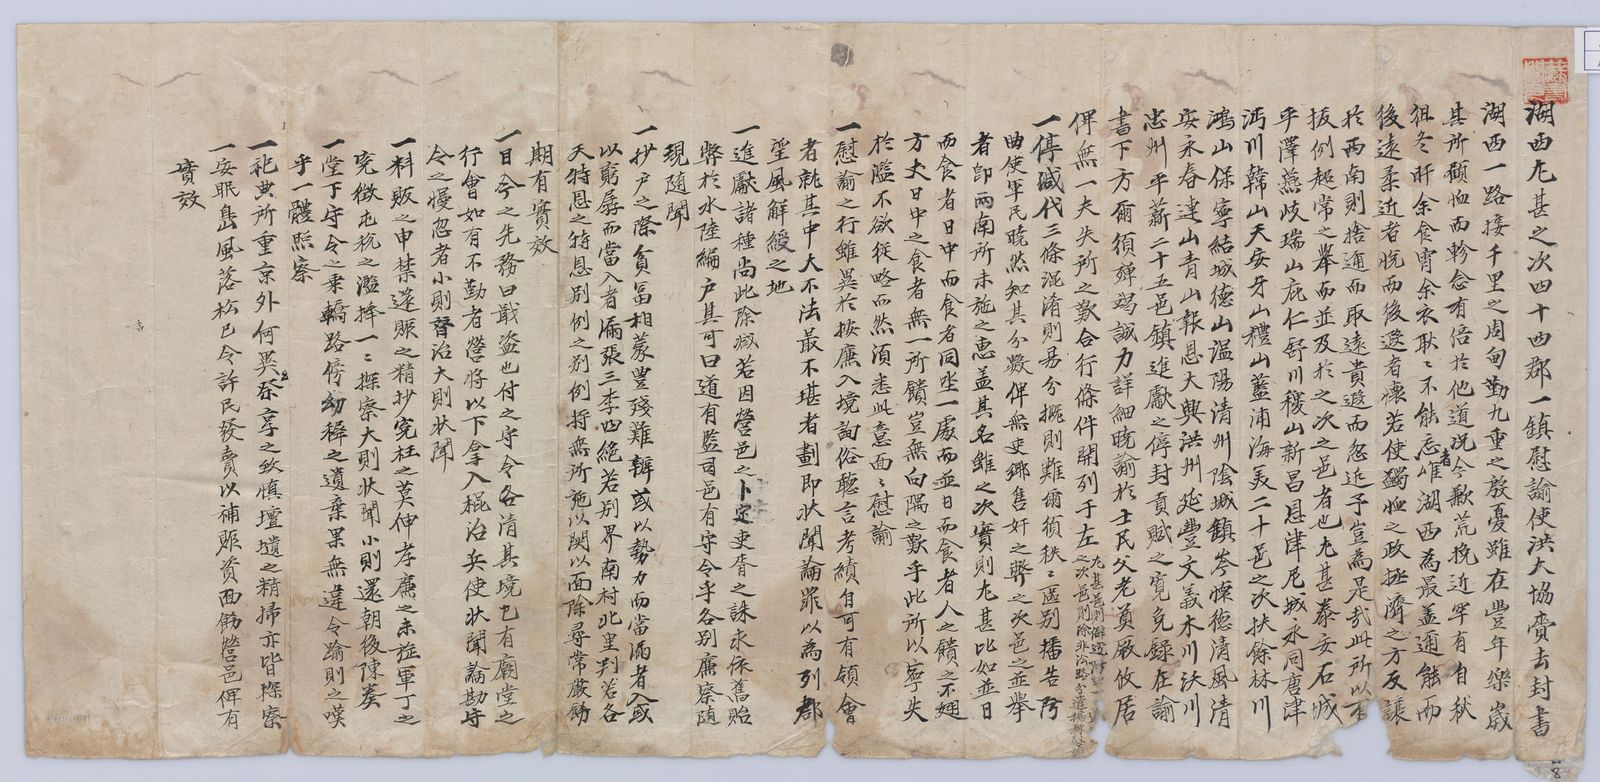 湖西尤甚之次四十四郡一鎮慰諭使洪大協賫去封書
湖西一路接千里之周甸勤九重之殷憂雖在豐年樂歲
其所顧恤而軫念有倍於他道况今歉荒挽近罕有自秋
徂冬旰余食宵余衣耿耿不能忘者雄湖西為最盖邇能而
後遠柔近者悅而後遐者懷若使蠲恤之政拯濟之方反讓
於兩南則捨邇而取遠貴遐而忽近予豈為是哉此所以
援例超常之舉而並及於之次之邑者也尤甚泰安石城
平澤燕歧瑞山庇仁舒川稷山新昌恩津尼城永同唐津
沔川韓山天安牙山禮山藍浦海美二十邑之次扶餘林川
鴻山保寧結城德山温陽清州陰城鎮岑懷德清風清
安永春連山青山報恩大興洪州延豐文義木川沃川
忠州平薪二十五邑鎮進獻之停封貢賦之寬免錄在諭
書下方爾須殫竭誠力詳細曉諭於士民父老員厥攸居
俾無一夫失所之歎合行條件開列于左
一停減代三條混淆則易分掇則難爾須秩秩區別播告
曲使軍民曉然知其分數俾無吏鄉售奸之弊之次邑之並舉
者卽兩南所未施之惠盖其名雖之次實則尤甚比如並日
而食者日中而食者同坐一處而並日而食者人之饋之不翅
方丈日中之食者無一所饋豈無向隅之歎乎此所以寧失
於濫不欲從略而然須悉此意面面慰諭
一慰諭之行雖異於按廉入境詢俗聽言考績自可有領會
者就其中大不法最不堪者劃即狀聞論罪以為列郡
望風解綬之地
一進獻諸種尚此除减若因營邑之卜定吏胥之誅求依舊貽
弊於水陸編户其可曰道有監司邑有守令乎各別廉察随
現随聞
一抄户之際貧富相蒙豐殘難辨或以勢力而當漏者入或
以窮孱而當入者漏張三李四絶若別界南村北里判若各
天特恩之特恩別例之別例將無所施以関以面除尋常嚴飭
期有實效
一目今之先務曰戢盗也付之守令各清其境已有廟堂之
行會如有不勤者營將以下拿入棍治兵使狀聞論勘守
令之慢忽者小則督治大則狀聞
一料販之申禁還賑之精抄寃枉之莫伸孝廉之未㫌軍丁之
寃徵屯税之濫捧一一探察大則狀聞小則還朝後陳奏
一堂下守令之乘轎路傍幼穉之遺棄果無違令踰則之嘆
乎一體照察
一祀典所重京外何異祭享之致慎壇壝之精掃亦皆探察
一安眠島風落松已令許民發賣以補賑資面飭營邑俾有
實效